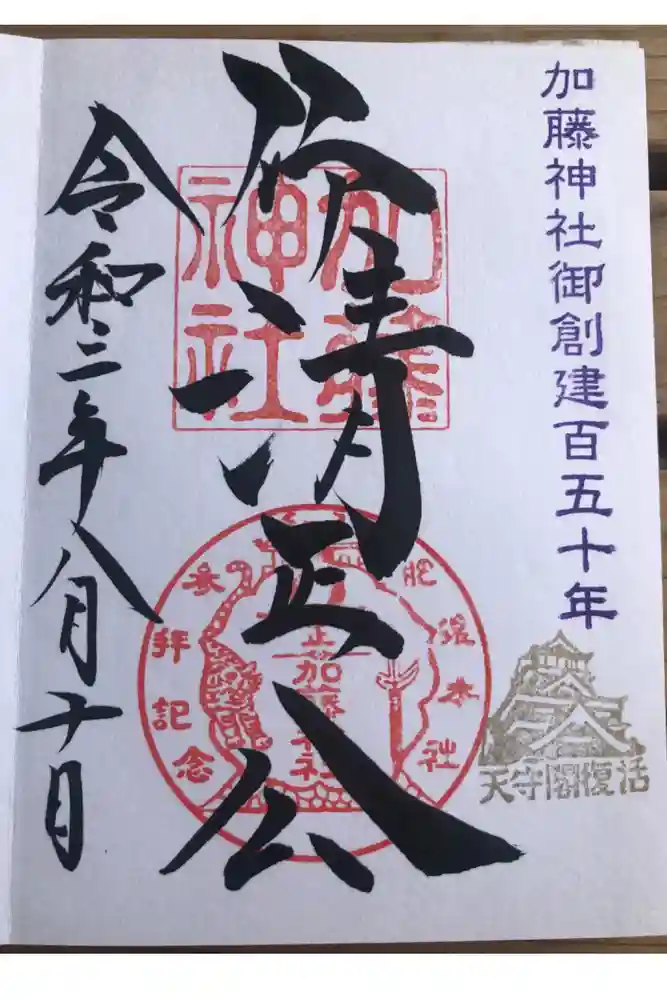 加藤神社御創建百五十年
天守閣復活
清正公
加藤
神社
参拝記念
加藤
令和三年八月十日